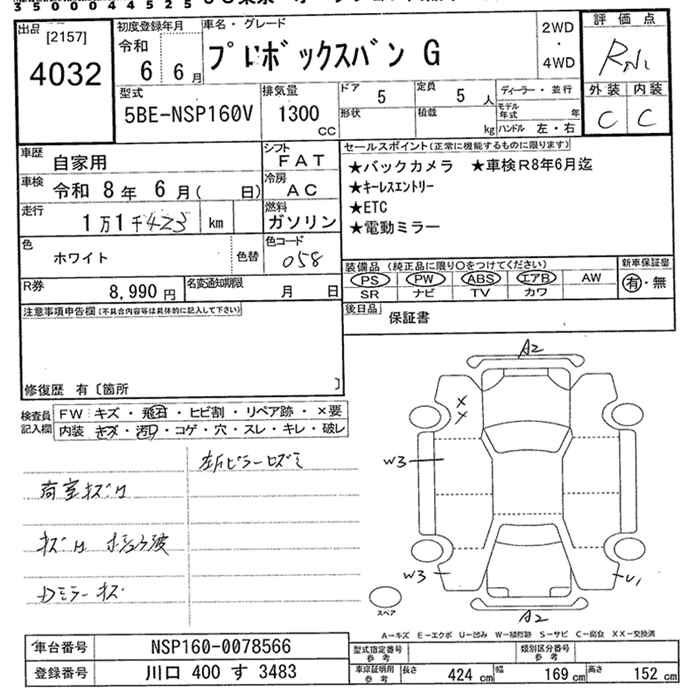 3500044525
出品 [2157]
4032
初度登録年月
令和
6 6月
車名・グレード
プロボックスバン G
2WD
・
4WD
評価点
外装 内装
C C
型式
5BE-NSP160V
排気量
1300
CC
ドア 5
定員 5 人
形状
積載 kg
ディーラー・並行
モデル年式 年
ハンドル 左・右
車歴 自家用
シフト FAT
車検 令和 8年 6月( 日)
冷房 AC
走行 1万1千423 km
燃料 ガソリン
色 ホワイト 色替
色コード 058
R券 8,990 円
名変通知期限 月 日
セールスポイント(正常に機能するものに限ります)
★バックカメラ ★車検R8年6月迄
★キーレスエントリー
★ETC
★電動ミラー
装備品(純正品に限り○をつけてください)
PS PW ABS エアB AW
SR ナビ TV カワ
新車保証書
有・無
後日品 保証書
注意事項申告欄(不具合内容等は具体的に記入して下さい)
修復歴 有〔箇所 〕
検査員記入欄
FW キズ・飛石・ヒビ割・リペア跡・×要
内装 キズ・汚れ・コゲ・穴・スレ・キレ・破レ
荷室キズ
キズ
Dミラーキズ
A2
W3
W3
U1
A2
スペア
A-キズ E-エクボ U-凹み W-補修跡 S-サビ C-腐食 XX-交換済
車台番号 NSP160-0078566
登録番号 川口 400 す 3483
型式指定番号 参考
類別区分番号 参考
車検証明用 参考
長さ 424 cm 幅 169 cm 高さ 152 cm